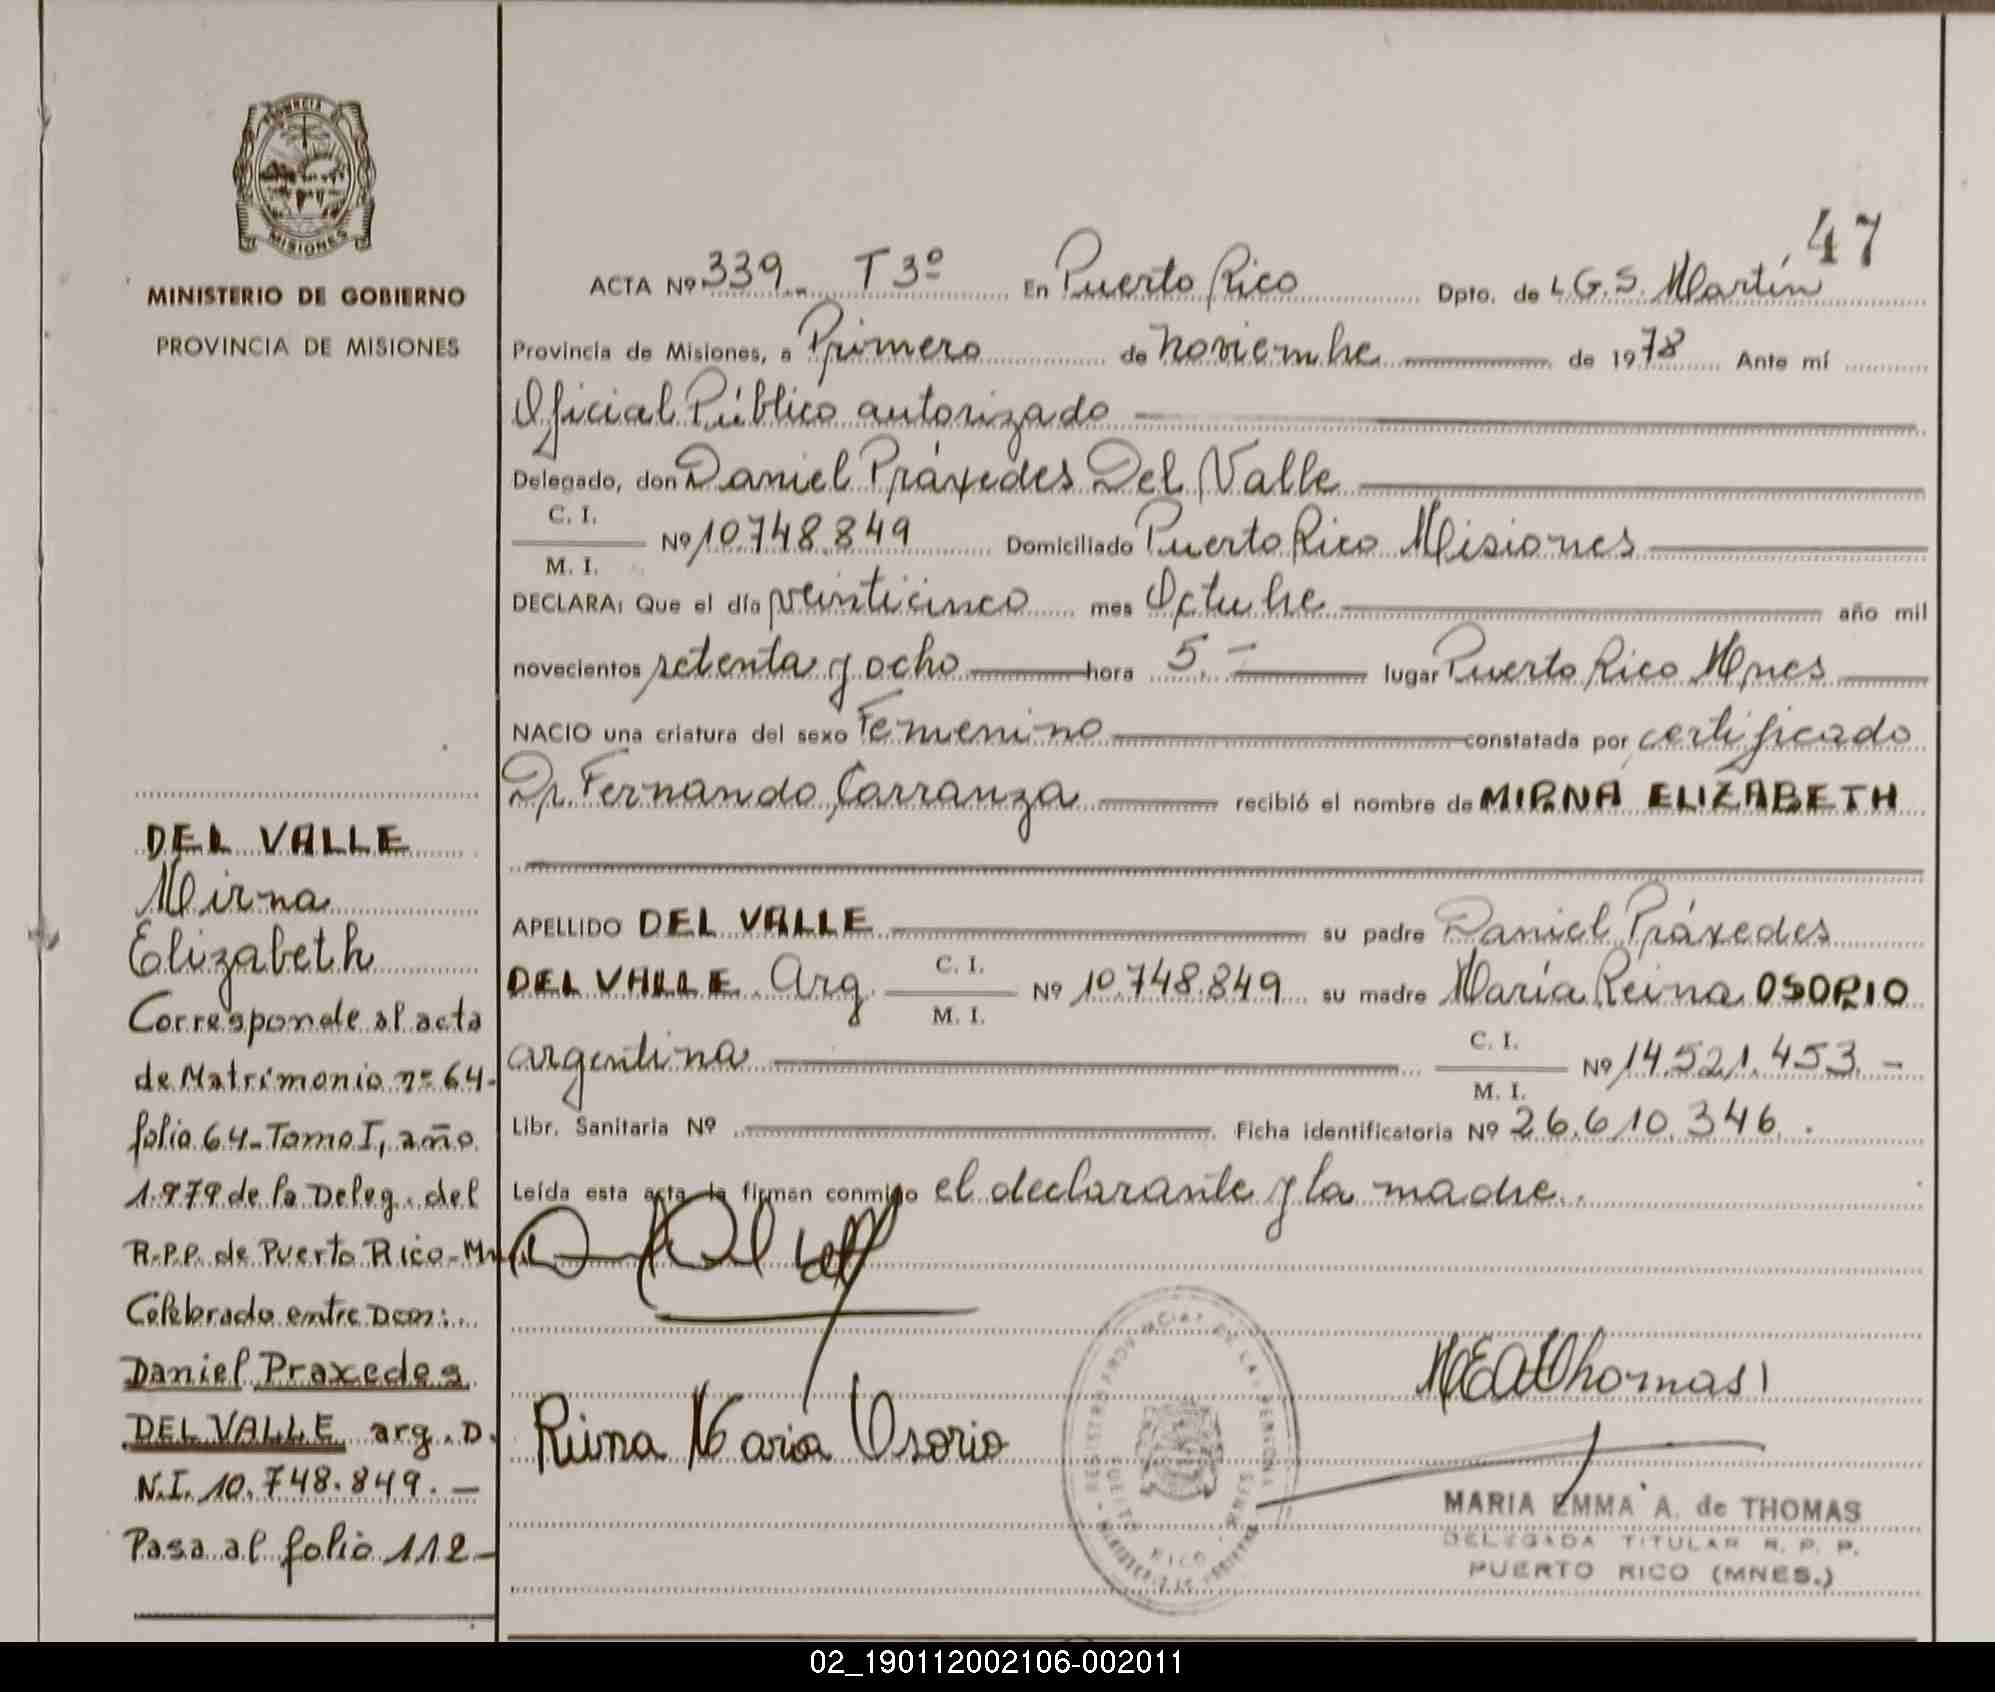 PROVINCIA
MISIONES
MINISTERIO DE GOBIERNO
PROVINCIA DE MISIONES
DEL VALLE
Mirna
Elizabeth
Corresponde al acta
de Matrimonio nº 64-
folio 64- Tomo I, año
1.979 de la Deleg. del
R.P.P. de Puerto Rico-Mnes
Celebrado entre Don:
Daniel Praxedes
DEL VALLE arg. D.
N.I. 10.748.849.-
Pasa al folio 112-
47
ACTA Nº 339.. T 3º En Puerto Rico Dpto. de L G. S. Martín
Provincia de Misiones, a Primero de noviembre de 1978 Ante mí
Oficial Público autorizado
Delegado, don Daniel Práxedes Del Valle
C. I.
M. I.
Nº 10.748.849 Domiciliado Puerto Rico Misiones
DECLARA: Que el día veinticinco mes Octubre año mil
novecientos setenta y ocho hora 5.- lugar Puerto Rico Mnes
NACIO una criatura del sexo Femenino constatada por certificado
Dr. Fernando Carranza recibió el nombre de MIRNA ELIZABETH
APELLIDO DEL VALLE su padre Daniel Práxedes
DEL VALLE Arg C. I. M. I. Nº 10.748.849 su madre María Reina OSORIO
argentina C. I. M. I. Nº 14.521.453.-
Libr. Sanitaria Nº Ficha identificatoria Nº 26.610.346.
Leída esta acta la firman conmigo el declarante y la madre.
Reina María Osorio
MEAThomas
REGISTRO PROVINCIAL DE LAS PERSONAS
PUERTO RICO - MNES
MARIA EMMA A. de THOMAS
DELEGADA TITULAR R. P. P.
PUERTO RICO (MNES.)
02_190112002106-002011